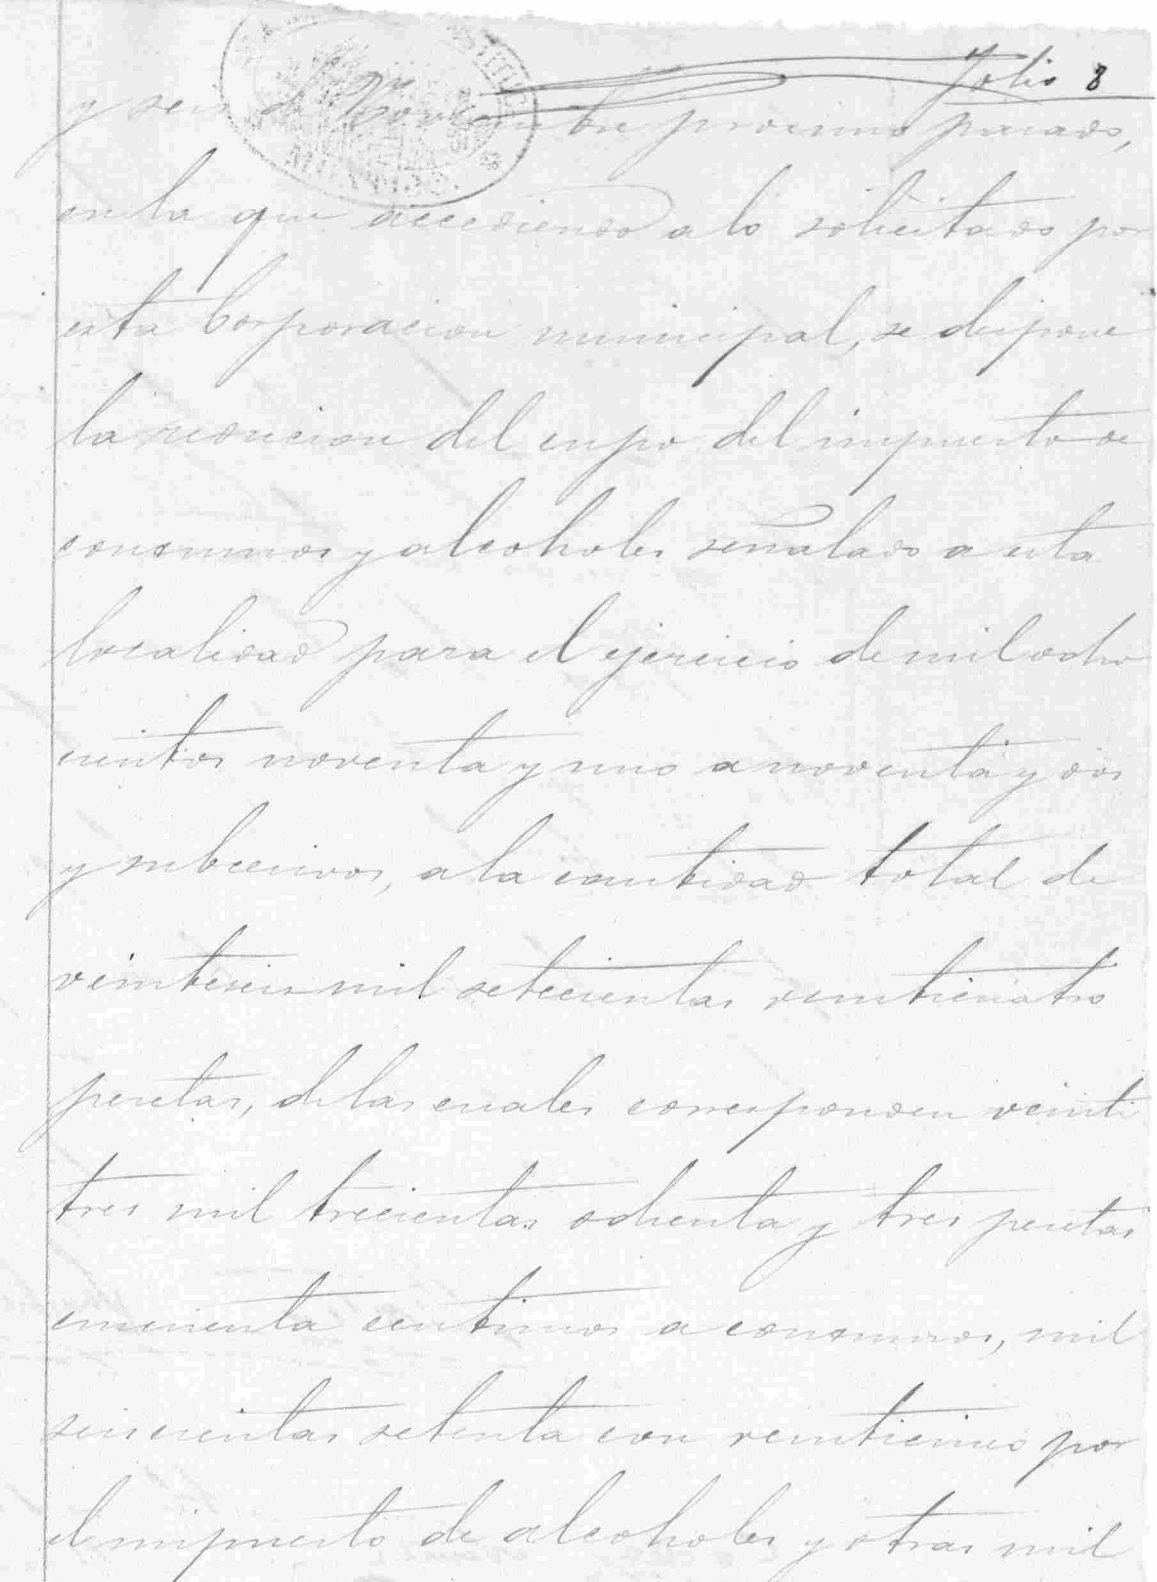 Folio 8
y seis de Noviembre procsimo pasado,
en la que accediendo a lo solicitado por
esta Corporacion municipal, se dispone
la reducion del cupo del impuesto de
consumos y alcoholes señalado a esta
localidad para el ejercicio de mil ocho
cientos noventa y uno a noventa y dos
y subcesivos, a la cantidad total de
veinteseis mil setecientas veinticuatro
pesetas, de las cuales corresponden veinti
tres mil trecientas ochenta y tres pesetas
cincuenta centimos a consumos, mil
seiscientas setenta con veinticinco por
el impuesto de alcoholes y otras mil